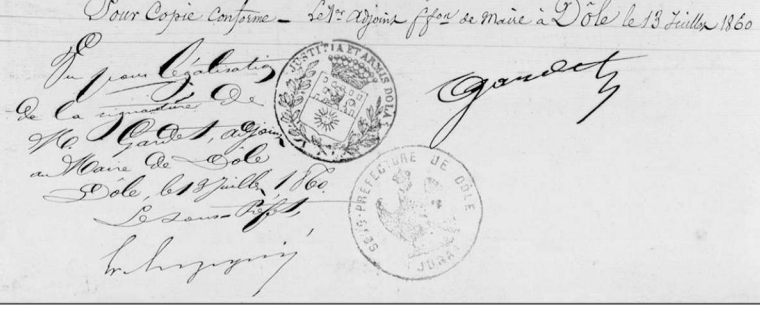 Pour Copie Conforme – Le 1er adjoint ffon de Maire à Dôle le 13 Juillet 1860
Gardet
Vu pour légalisation
de la signature de
M. Gardet, adjoint
au Maire de Dôle
Dôle, le 13 Juillet 1860.
Le sous-Préfet,
JUSTITIA ET ARMIS DOLA
SOUS-PRÉFECTURE DE DÔLE
(JURA)